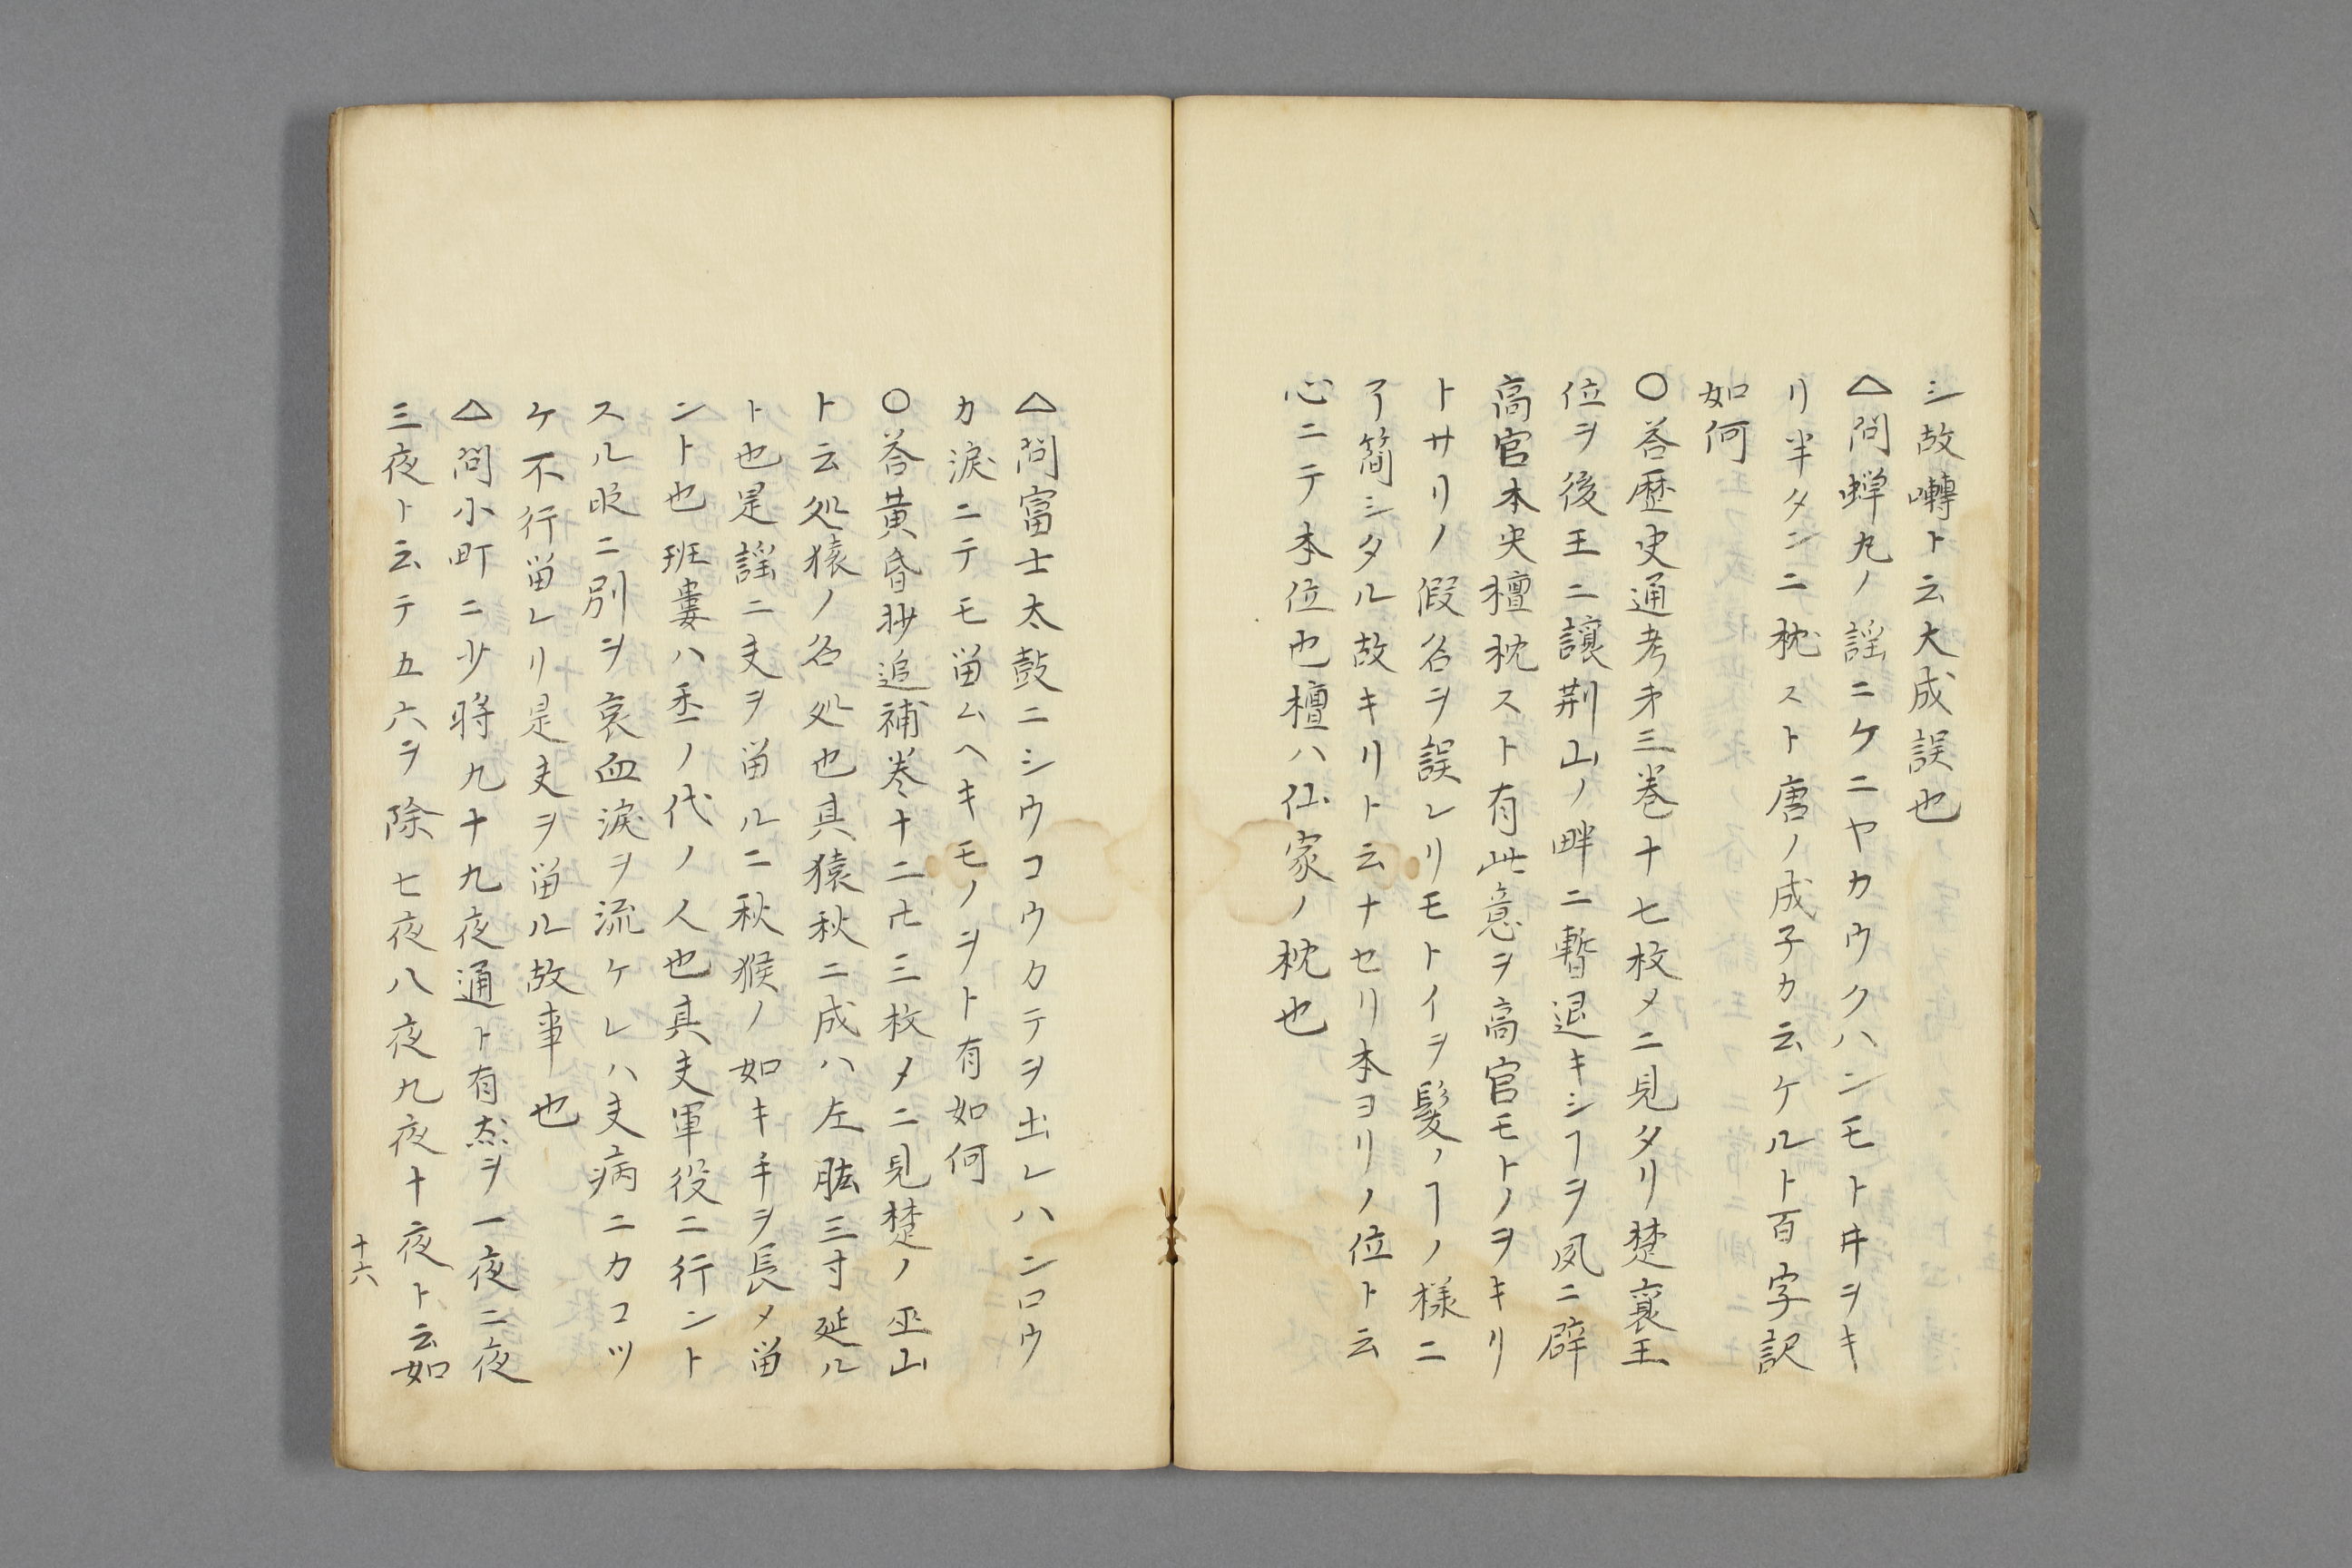 シ故囀ト云大成誤也
△問蝉丸ノ謡ニケニヤカウクハンモトヰヲキ
リ半タンニ枕スト唐ノ成子カ云ケルト百字訳
如何
○答歴史通考第三巻十七枚メニ見タリ楚襄王
位ヲ後王ニ譲荆山ノ畔ニ暫退キシヿヲ凤ニ辟
高官本央檀枕スト有此意ヲ高官モトノヲキリ
トサリノ假名ヲ誤レリモトイヲ髪ノヿノ様ニ
了簡シタル故キリト云ナセリ本ヨリノ位ト云
心ニテ本位也檀ハ仙家ノ枕也
△問富士太鼓ニシウコウカテヲ出レハンロウ
カ涙ニテモ畄ムヘキモノヲト有如何
○答黄昏抄追補巻十二卅三枚メニ見楚ノ巫山
ト云処猿ノ名処也其猿秋ニ成ハ左肱三寸延ル
ト也是謡ニ夫ヲ畄ルニ秋猴ノ如キ手ヲ長メ畄
ント也班婁ハ丕ノ代ノ人也其夫軍役ニ行ント
スル時ニ別ヲ哀血涙ヲ流ケレハ夫病ニカコツ
ケ不行畄レリ是夫ヲ畄ル故事也
△問小町ニ少将九十九夜通ト有然ヲ一夜二夜
三夜ト云テ五六ヲ除七夜八夜九夜十夜ト云如
十六